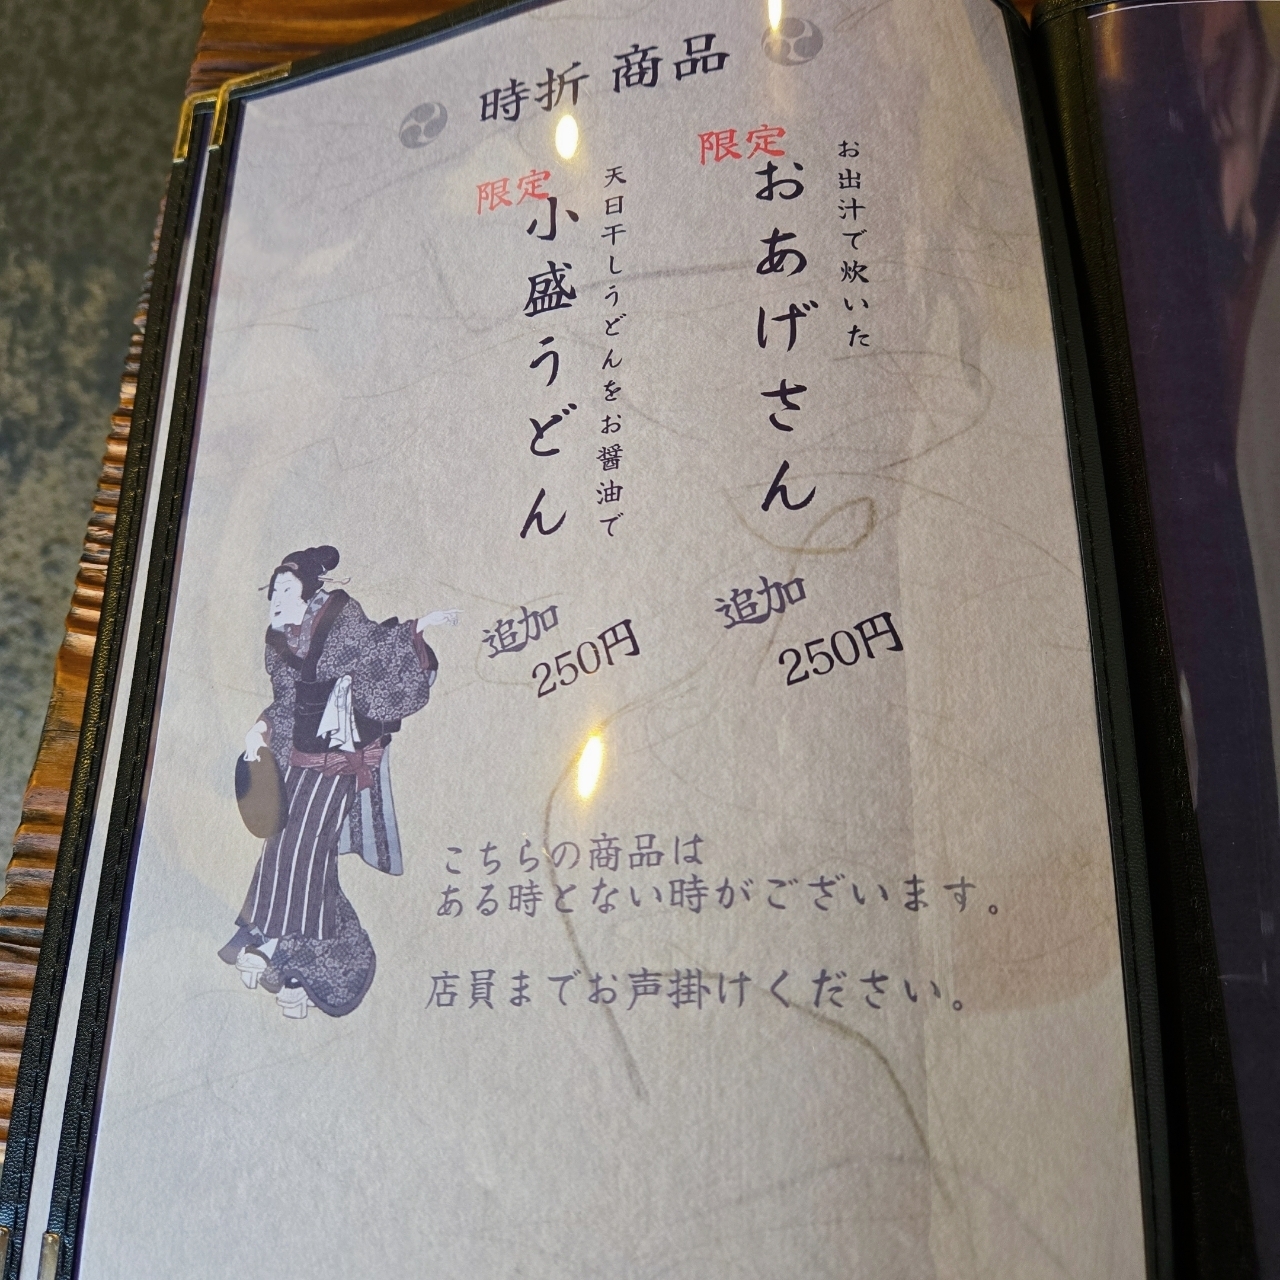 時折 商品
限定
お出汁で炊いた
おあげさん
追加
250円
限定
天日干しうどんをお醤油で
小盛うどん
追加
250円
こちらの商品は
ある時とない時がございます。
店員までお声掛けください。